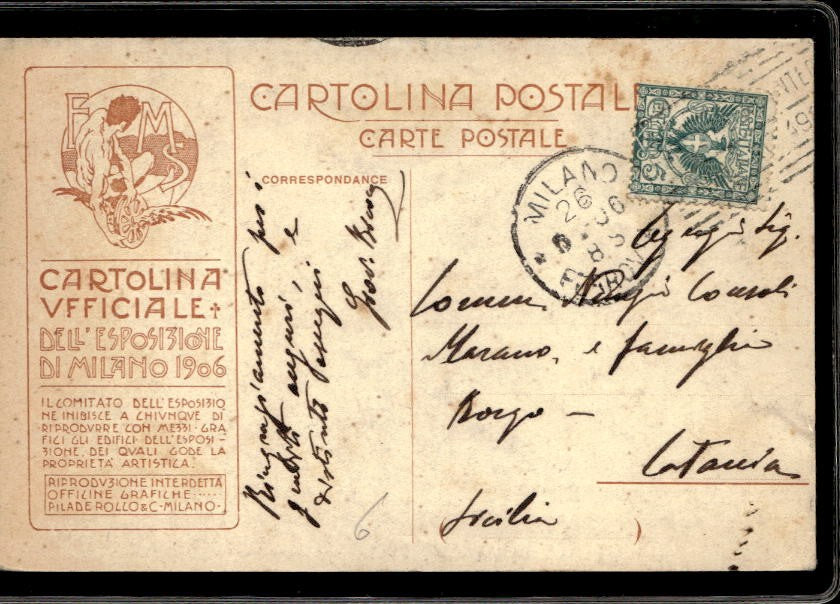 CARTOLINA POSTAL
CARTE POSTALE
CORRESPONDANCE
E M S
CARTOLINA
VFFICIALE
DELL'ESPOSIZIONE
DI MILANO 1906
IL COMITATO DELL'ESPOSIZIO
NE INIBISCE A CHIVNQVE DI
RIPRODVRRE CON MEZZI GRA
FICI GLI EDIFICI DELL'ESPOSI-
ZIONE, DEI QVALI GODE LA
PROPRIETA' ARTISTICA.
RIPRODVZIONE INTERDETTA
OFFICINE GRAFICHE
PILADE ROLLO & C - MILANO
Ringraziamento pei
graditi auguri, e
distinti ossequi
Giov.
MILANO
26
6 06
8 S
Sig.
Comm. Consoli
Marano, e famiglia
Borgo -
Catania
Sicilia
6